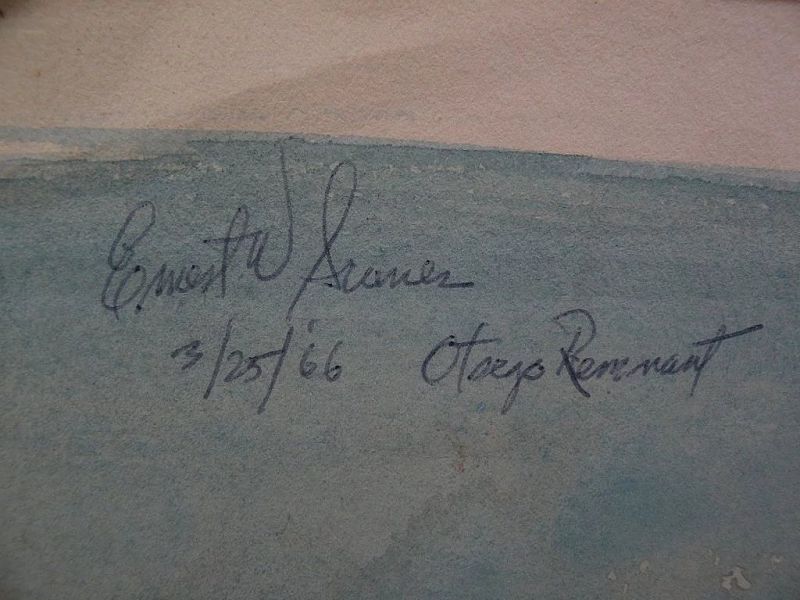 Ernest W Scanes
3/25/'66 Otsego Remnant